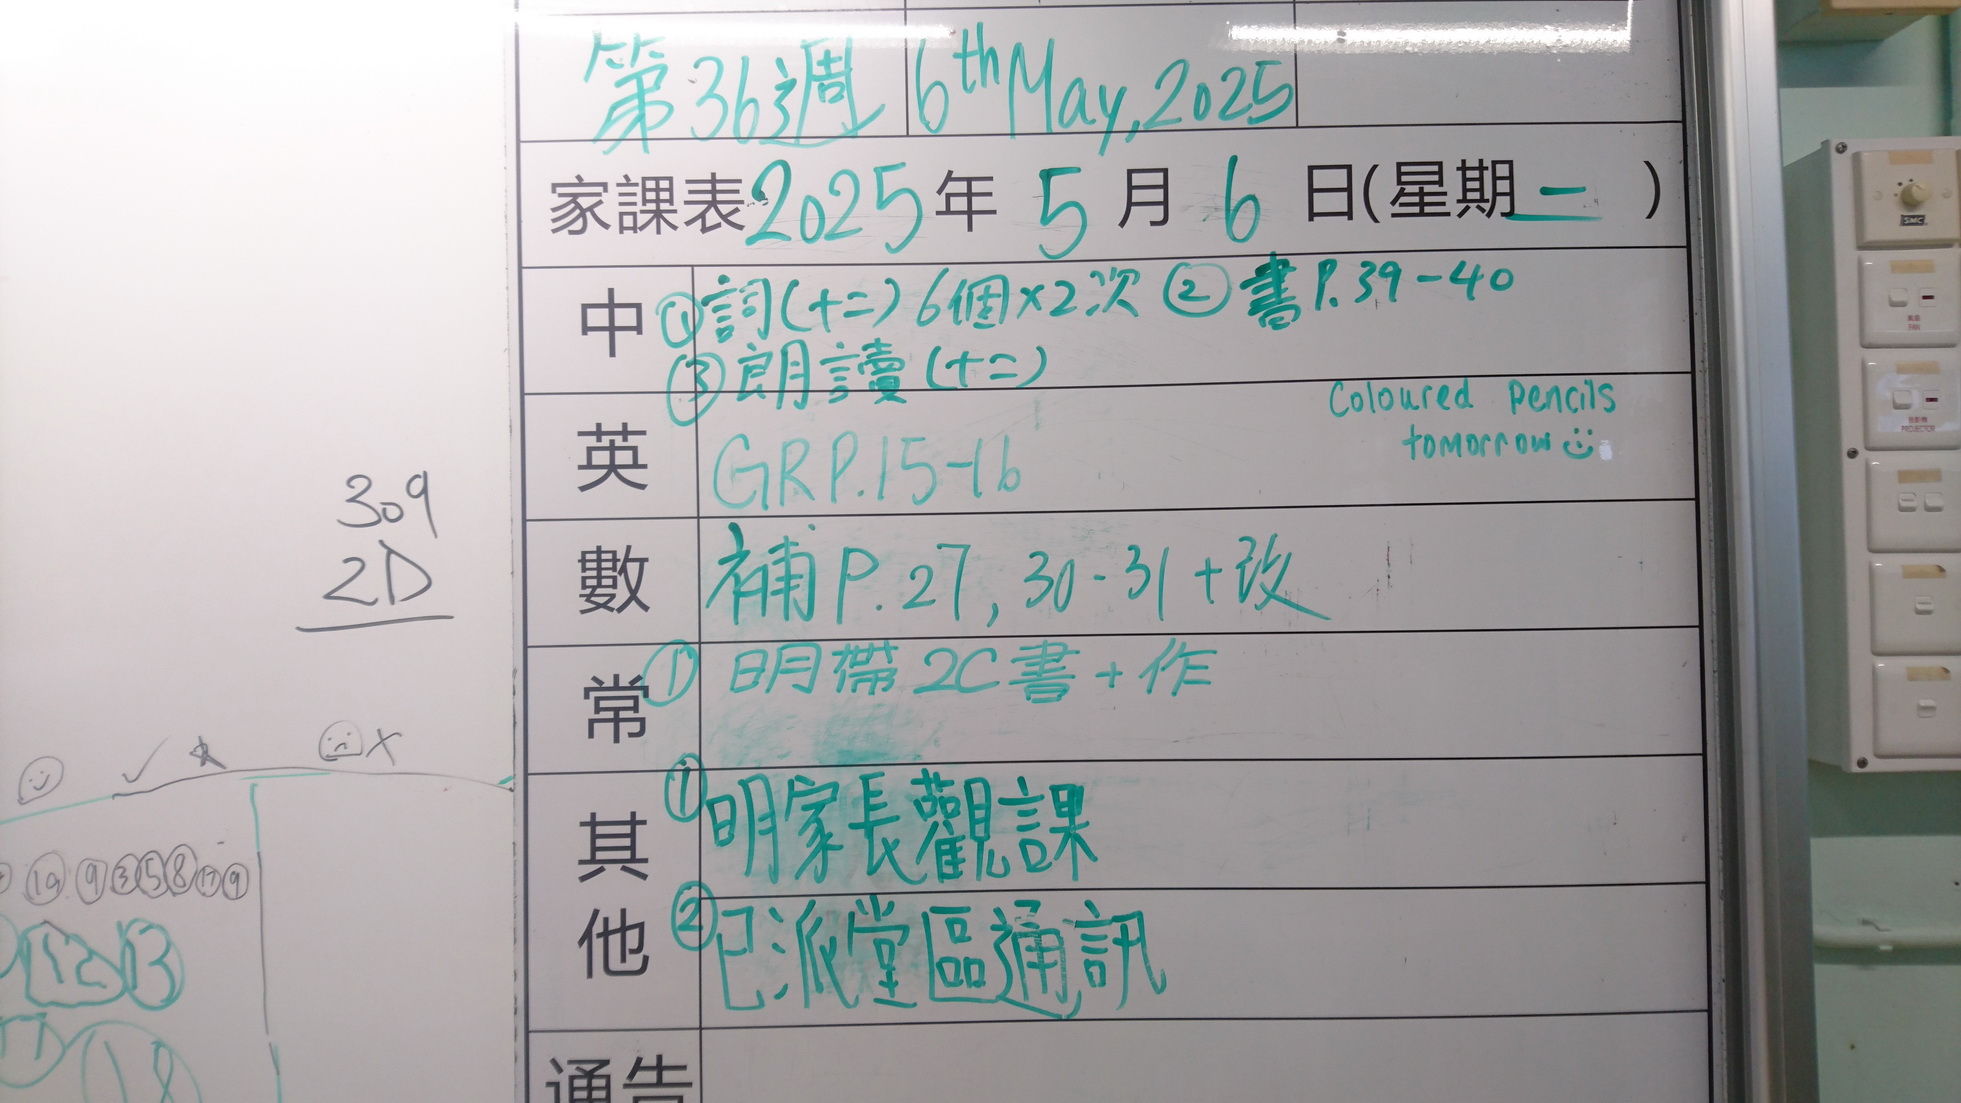 第36週 6th May, 2025
家課表 2025年 5月 6日(星期二)
中 ①詞(十二)6個×2次 ②書P.39-40
③朗讀(十二)
英 GRP.15-16 Coloured pencils
tomorrow
數 補P.27, 30-31+改
常 ①明帶2C書+作
其他 ①明家長觀課
②已派堂區通訊
通告
309
2D
⑲ ⑨ ③ ⑤ ⑧ ⑰ ⑨
12 13
11 18
SMC
FAN
PROJECTOR